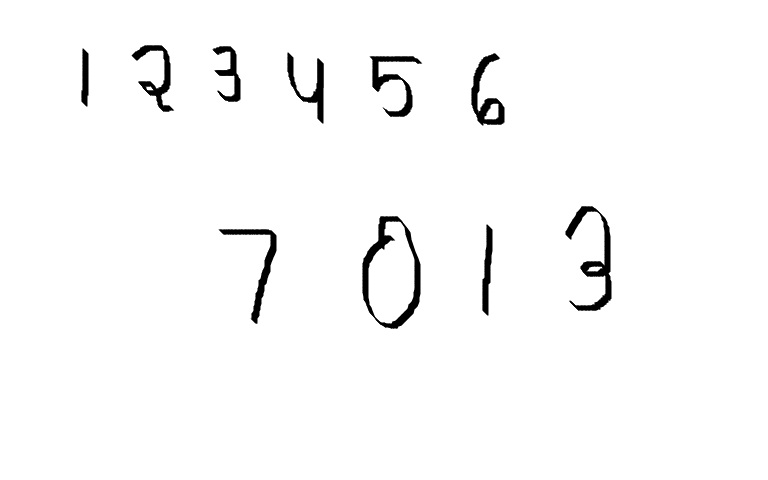 1 2 3 4 5 6
7 0 1 3